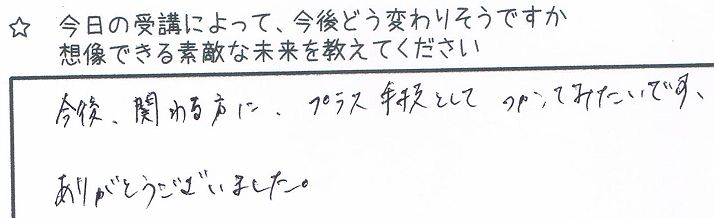 ☆ 今日の受講によって、今後どう変わりそうですか
想像できる素敵な未来を教えてください
今後、関わる方に、プラス手技として つかってみたいです、
ありがとうございました。